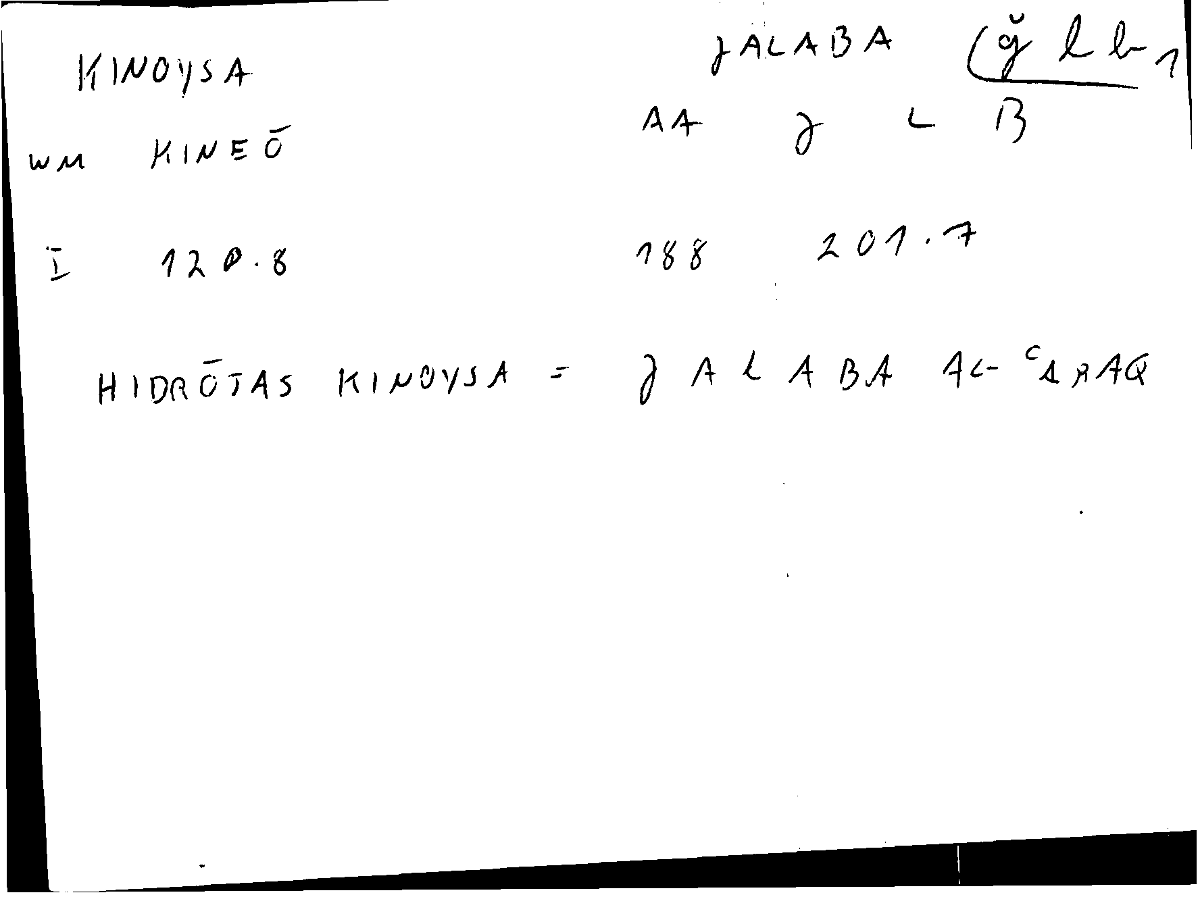 KINOYSA JALABA (ğ l b 1
WM KINEŌ AA J L B
I 120.8 188 201.7
HIDRŌTAS KINOYSA = JALABA AL-ʿARAQ